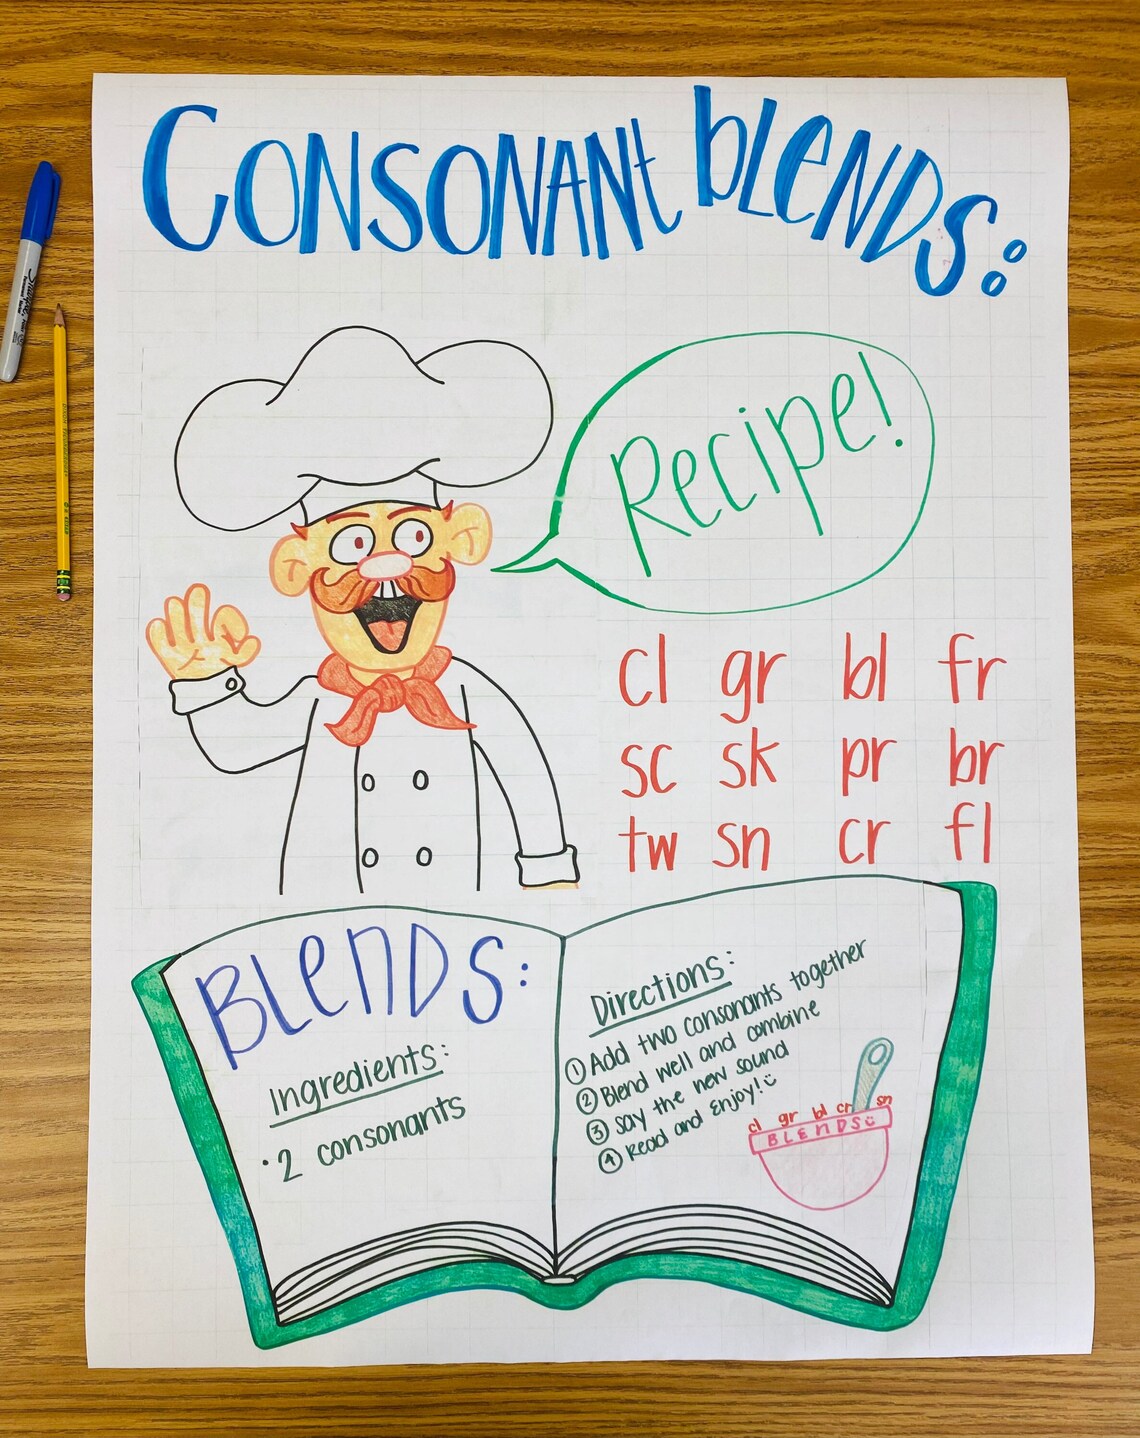 Consonant blends:
Recipe!
cl gr bl fr
sc sk pr br
tw sn cr fl
Blends:
Ingredients:
• 2 consonants
Directions:
① Add two consonants together
② Blend well and combine
③ Say the new sound
④ Read and Enjoy! ☺
cl gr bl cr sn
BLENDS☺
Sharpie